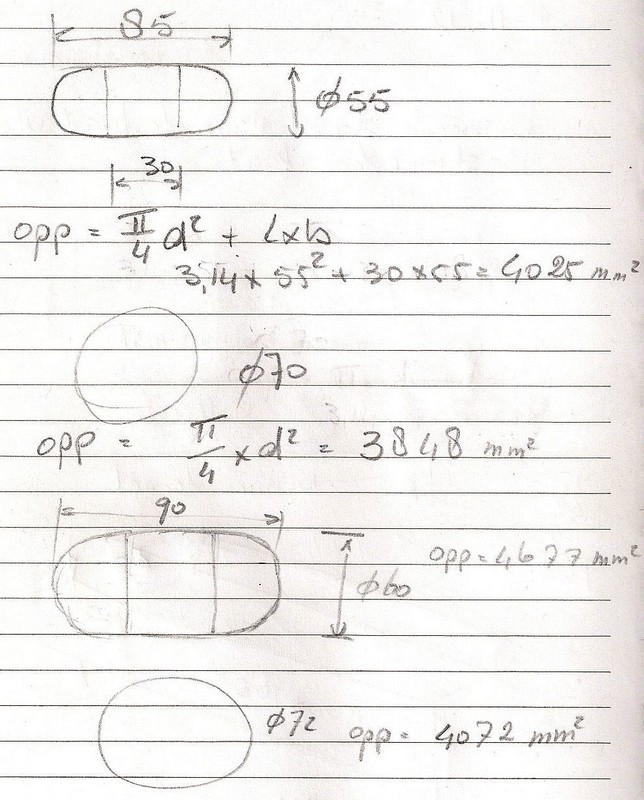 85
ϕ55
30
opp = π/4 d² + l×b
3,14 × 55² + 30 × 55 = 4025 mm²
ϕ70
opp = π/4 × d² = 3848 mm²
90
opp = 4677 mm²
ϕ60
ϕ72 opp = 4072 mm²